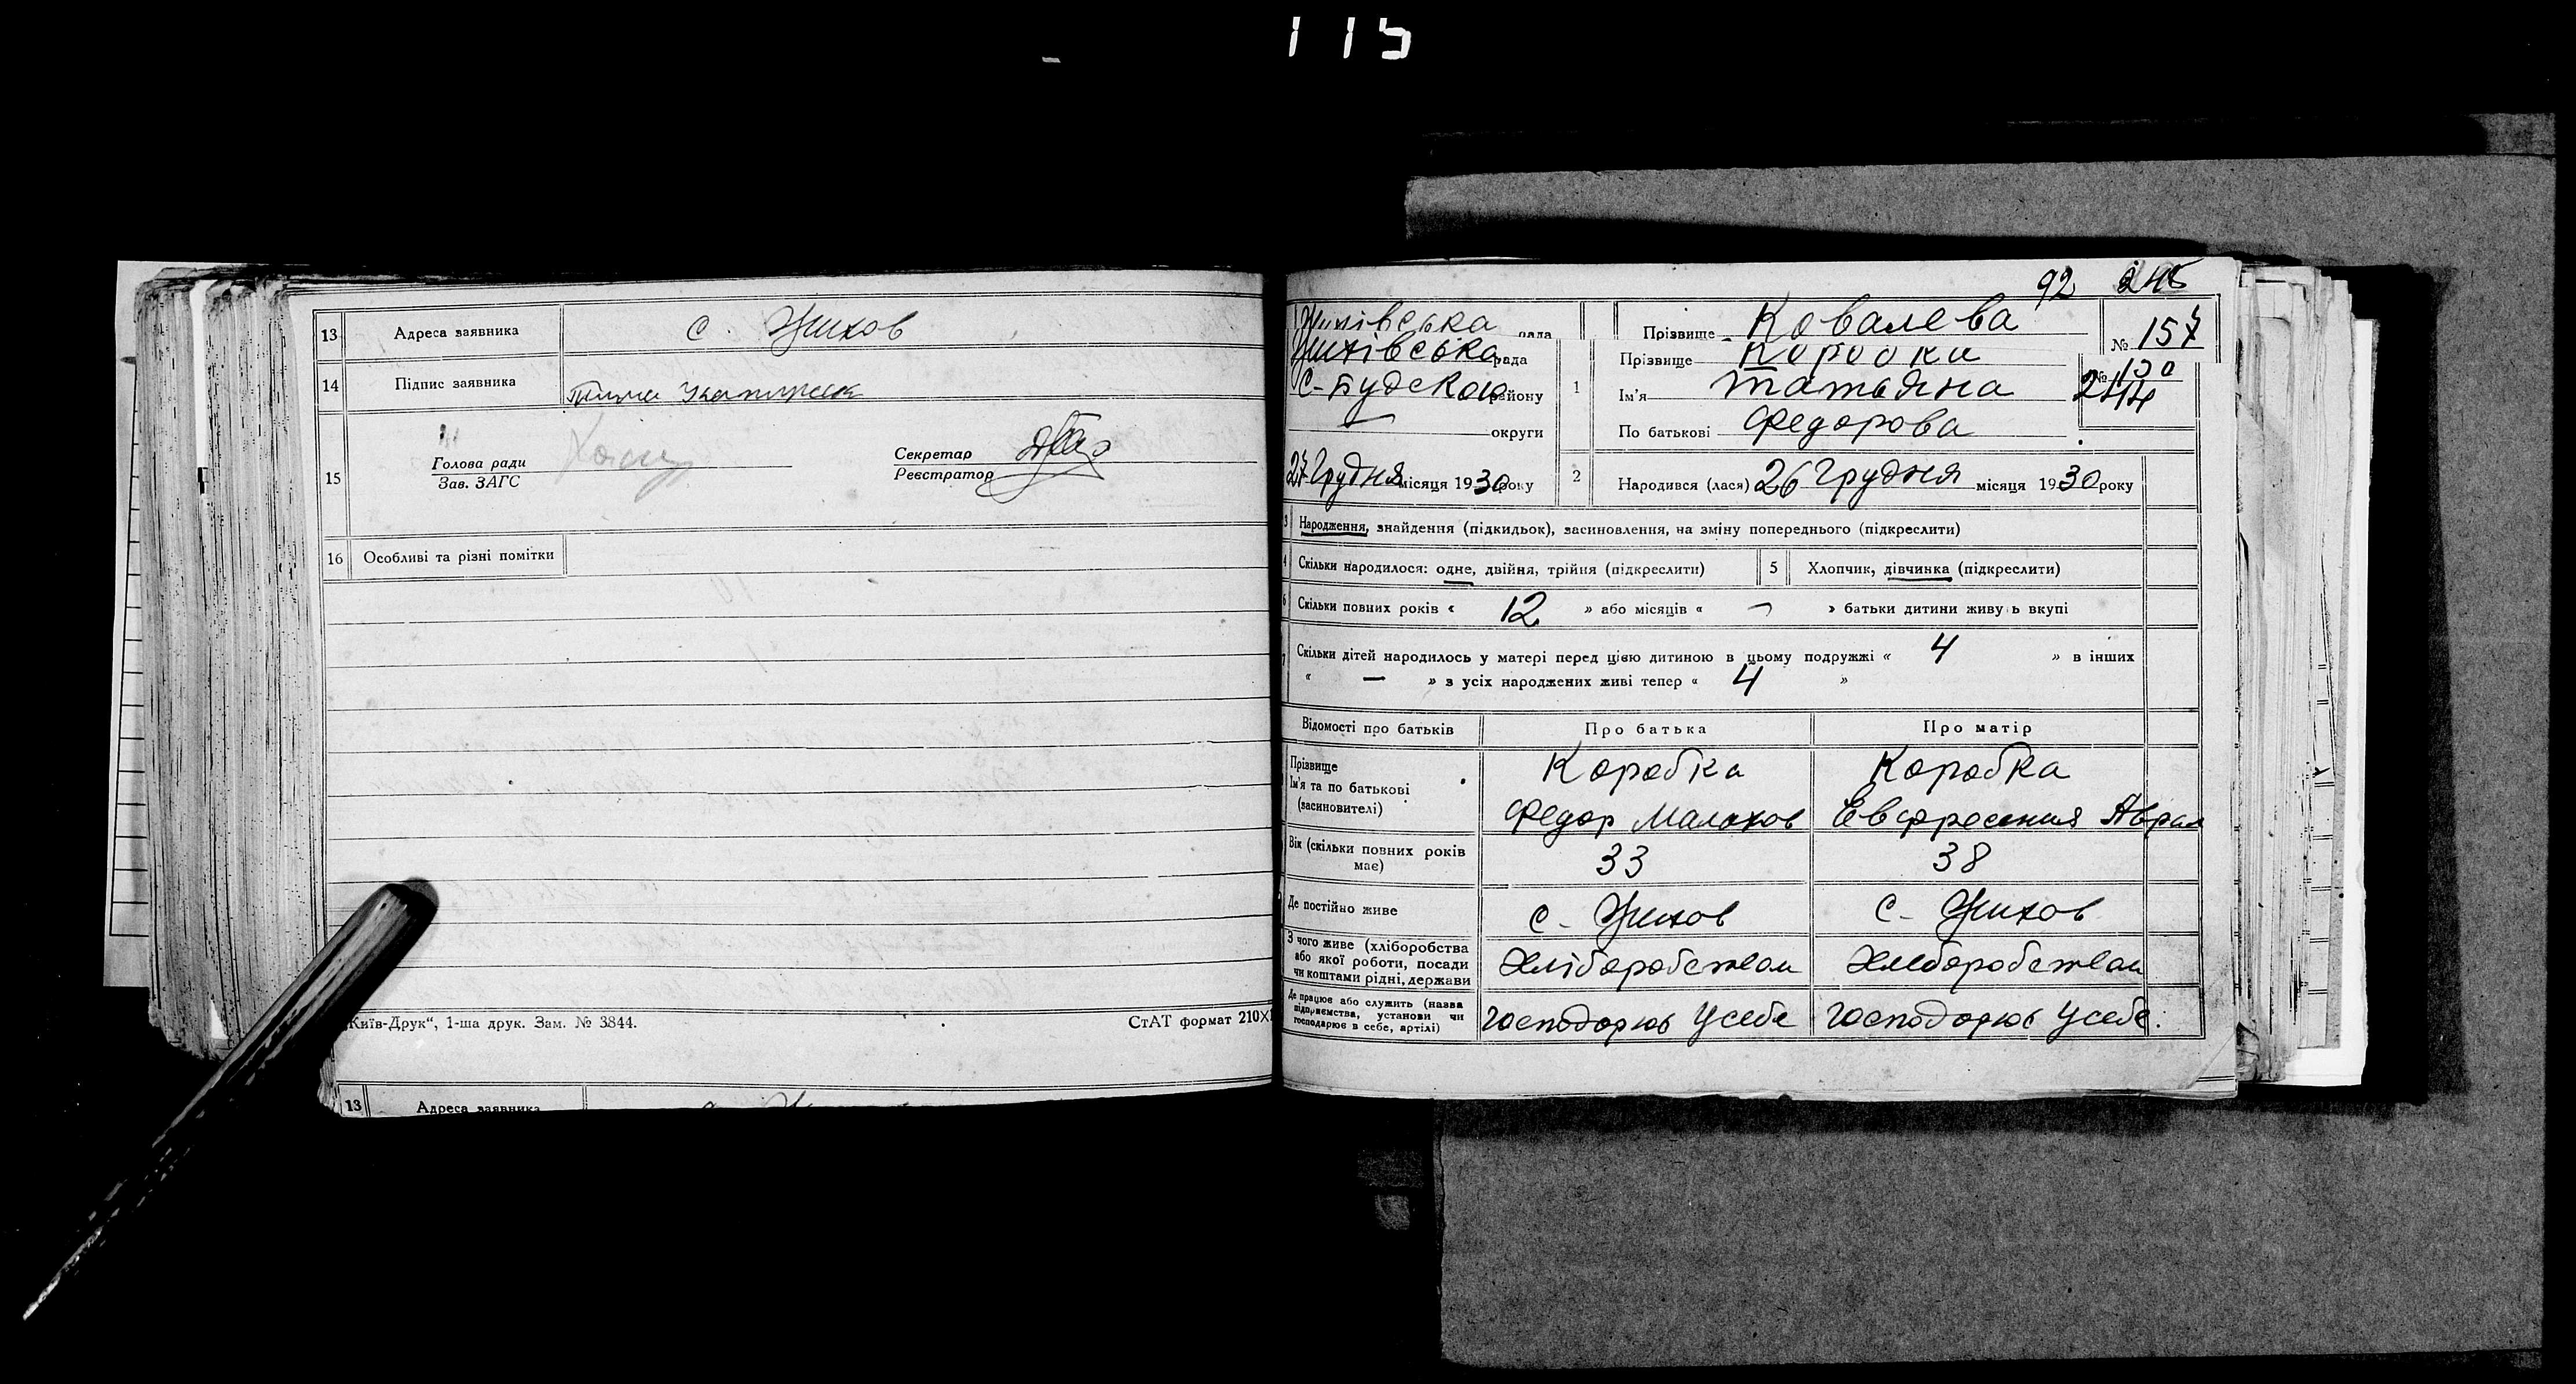 115
13 Адреса заявника с. Жихов
14 Підпис заявника
15 Голова ради
Зав. ЗАГС
Секретар
Реєстратор
16 Особливі та різні помітки
„Київ-Друк“, 1-ша друк. Зам. № 3844.
СтАТ формат 210Х
13 Адреса заявника
92 245
Жихівська рада Прізвище Ковалева № 157
Жихівська рада Прізвище Коробка
С-Будского району 1 Ім'я Татьяна 244
округи По батькові Федорова
27 Грудня місяця 1930 року 2 Народився (лася) 26 Грудня місяця 1930 року
3 Народження, знайдення (підкидьок), засиновлення, на зміну попереднього (підкреслити)
4 Скільки народилося: одне, двійня, трійня (підкреслити) 5 Хлопчик, дівчинка (підкреслити)
6 Скільки повних років « 12 » або місяців « — » батьки дитини живуть вкупі
7 Скільки дітей народилось у матері перед цією дитиною в цьому подружжі « 4 » в інших
« — » з усіх народжених живі тепер « 4 »
Відомості про батьків Про батька Про матір
Прізвище Коробка Коробка
Ім'я та по батькові
(засиновителі) Федор Малахов Евфросения Аврам
Вік (скільки повних років
має) 33 38
Де постійно живе с- Жихов с- Жихов
З чого живе (хліборобства
або якої роботи, посади
чи коштами рідні, держави Хліборобством Хлеборобством
Де працює або служить (назва
підприємства, установи чи
господарює в себе, артілі) Господорює У себе Господорює У себе.